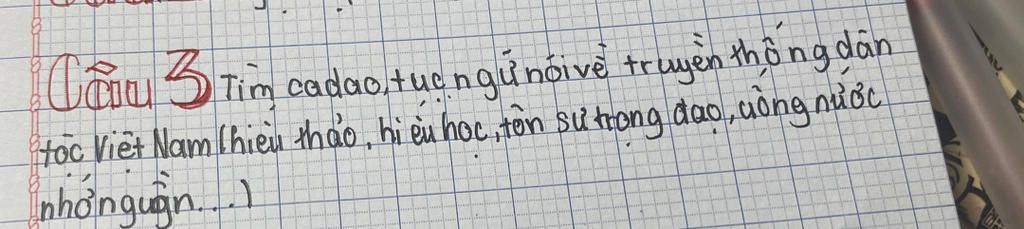 Câu 3 Tìm ca dao, tục ngữ nói về truyền thống dân
tộc Việt Nam (hiếu thảo, hiếu học, tôn sư trọng đạo, uống nước
nhớ nguồn...)